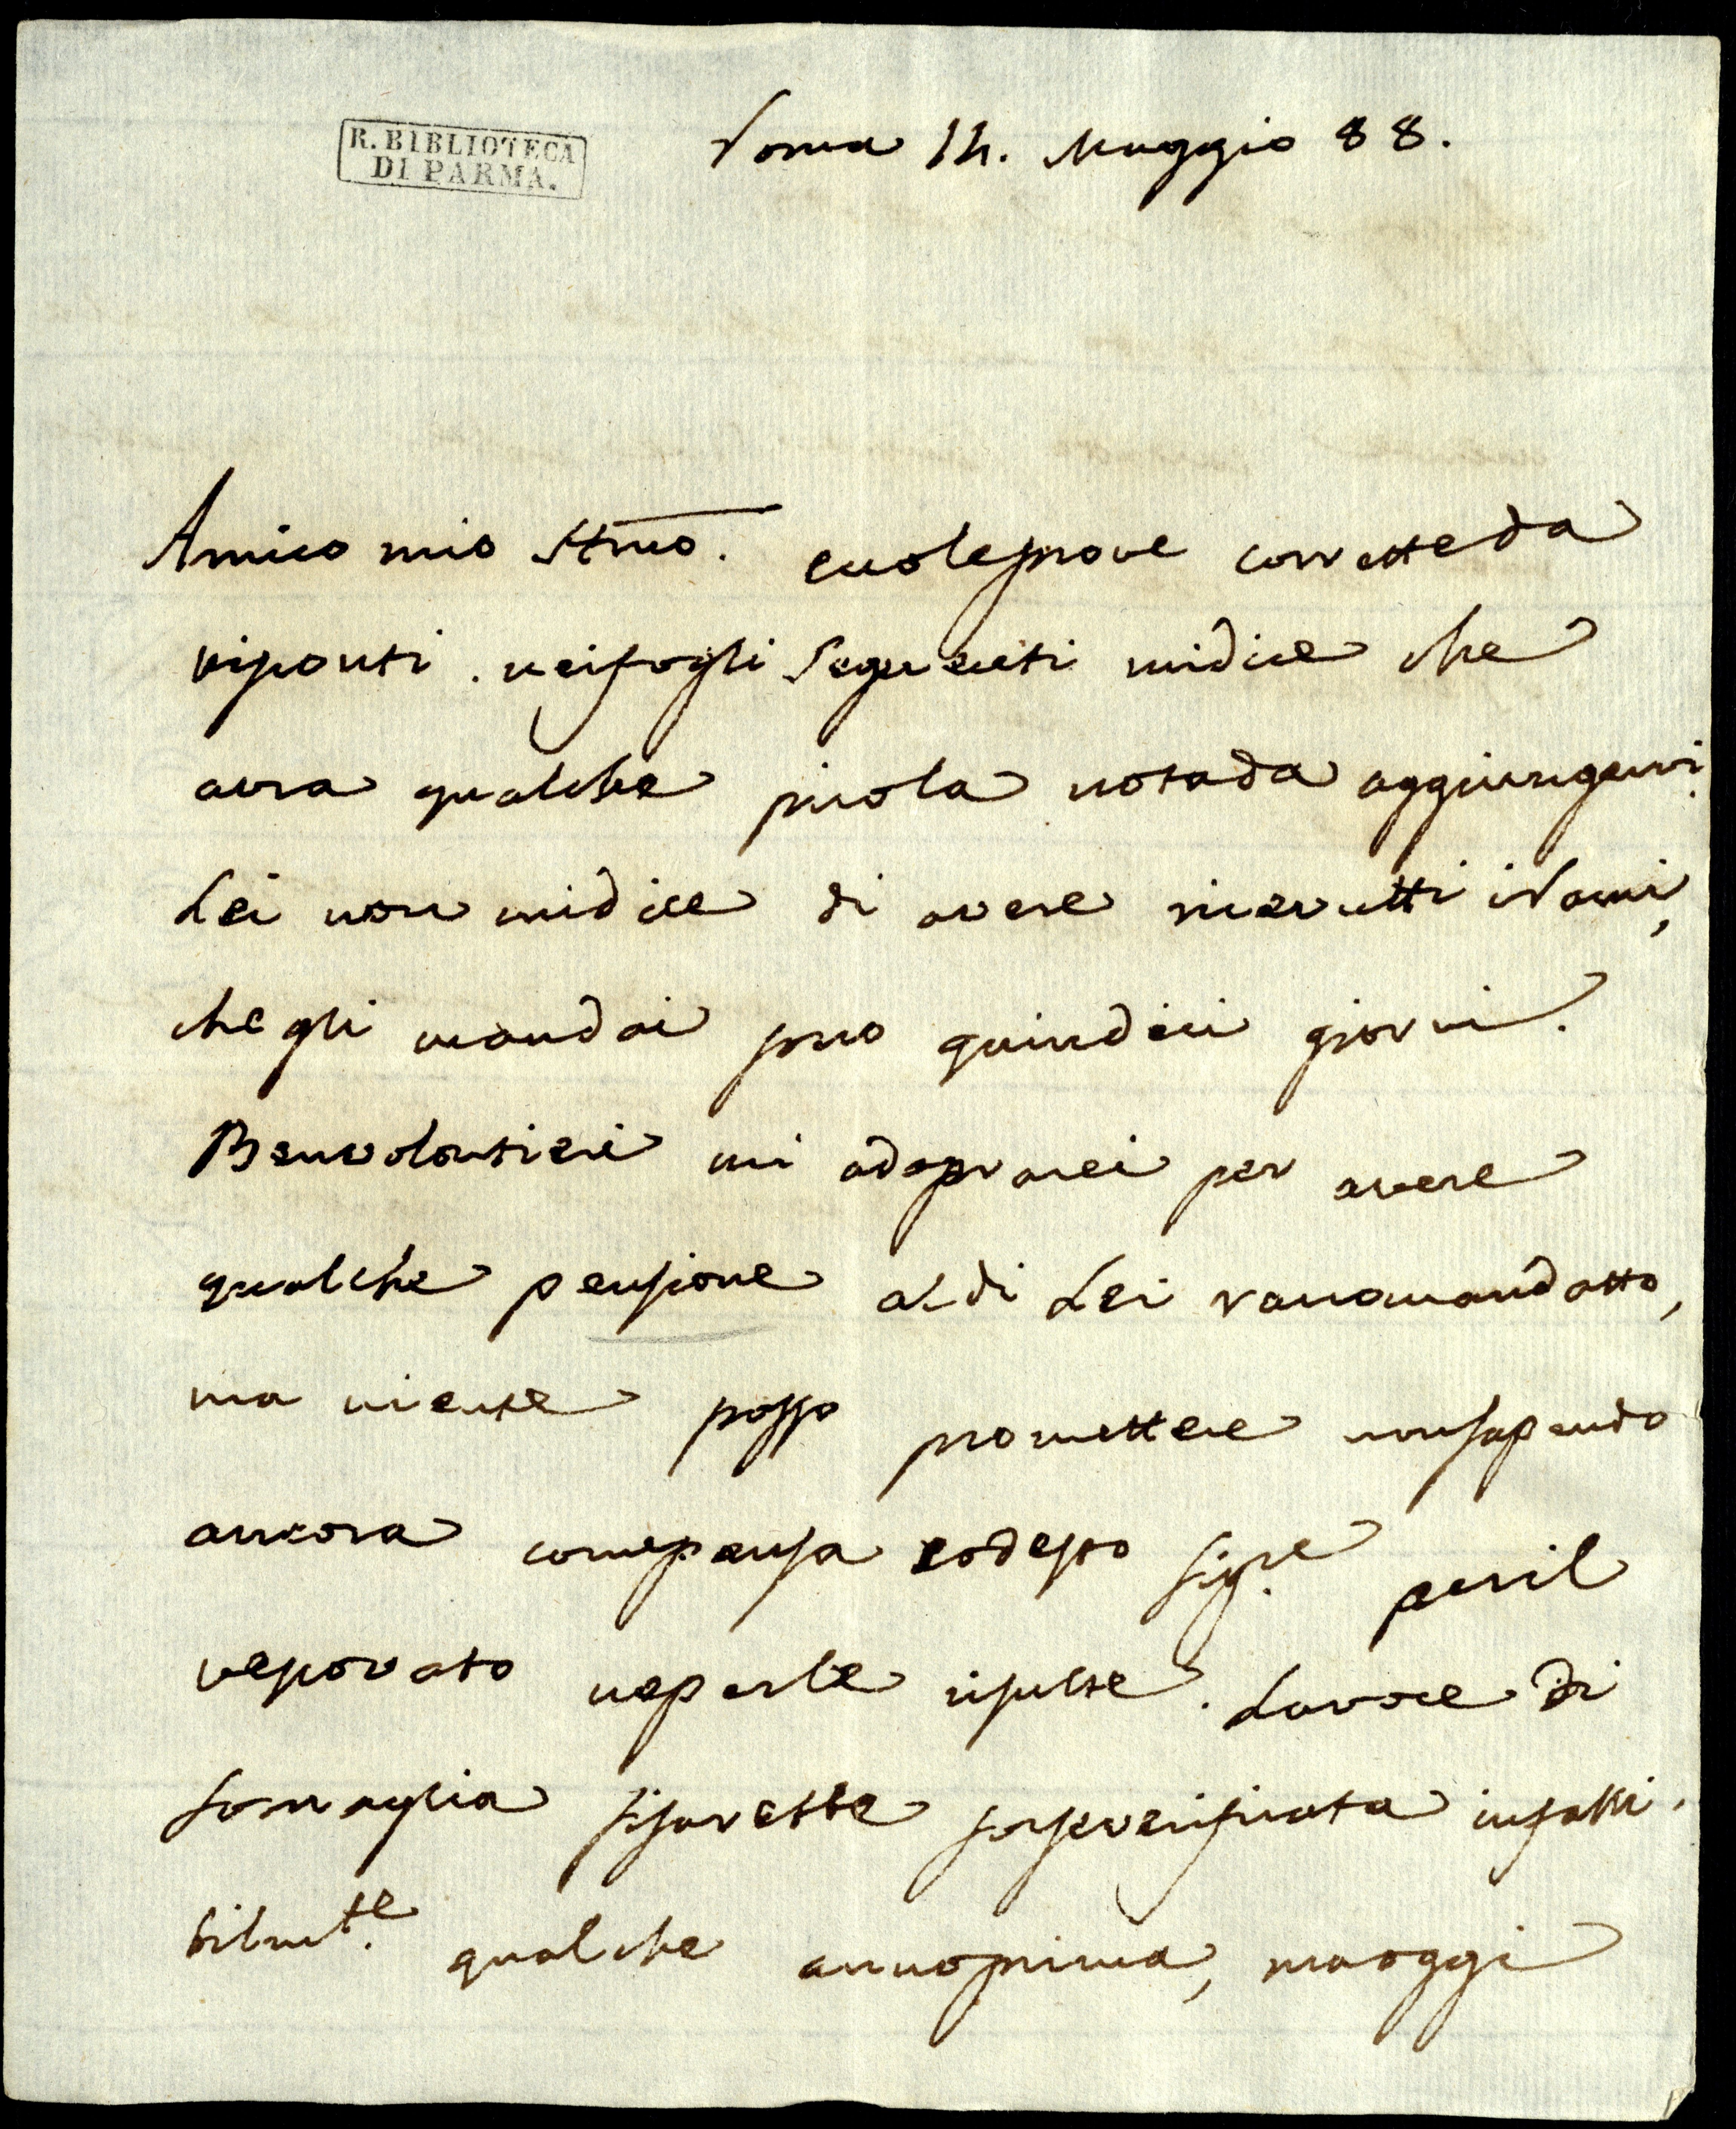 R. BIBLIOTECA
DI PARMA.
Roma 14. Maggio 88.
Amico mio Stmo. eccole prove corrette da
Visconti. nei fogli seguenti mi dice che
avra qualche picola nota da aggiungervi.
Lei non mi dice di avere ricevutti i Rami,
che gli mandai sono quindici giorni.
Benvolontieri mi adoprarei per avere
qualche pensione al di Lei racomandatto,
ma niente posso promettere non sapendo
ancora come pensa codesto Sigre per il
vescovato ne per le risulte. La voce di
Somaglia si sarebbe forse verificata infalli-
bilmte. qualche anno prima, ma oggi